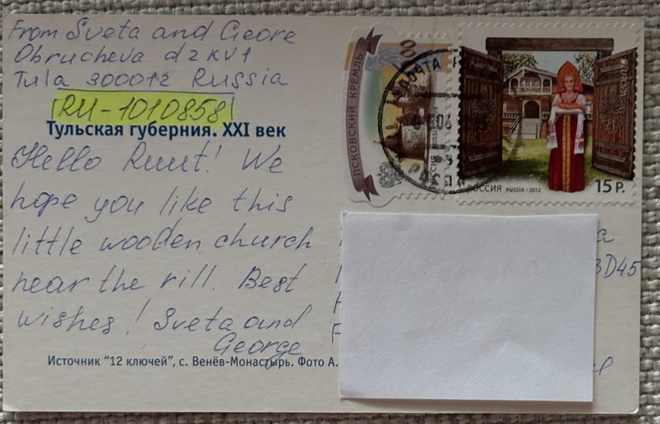 From Sveta and Geore
Obrucheva d2 kv1
Tula 300012 Russia
RU-1010858
Тульская губерния. XXI век
Hello Ruut! We
hope you like this
little wooden church
near the rill. Best
wishes! Sveta and
George
Источник "12 ключей", с. Венёв-Монастырь. Фото А.
ПСКОВСКИЙ КРЕМЛЬ
ПОЧТА
РОССИЯ RUSSIA • 2012
15 Р.
3D45